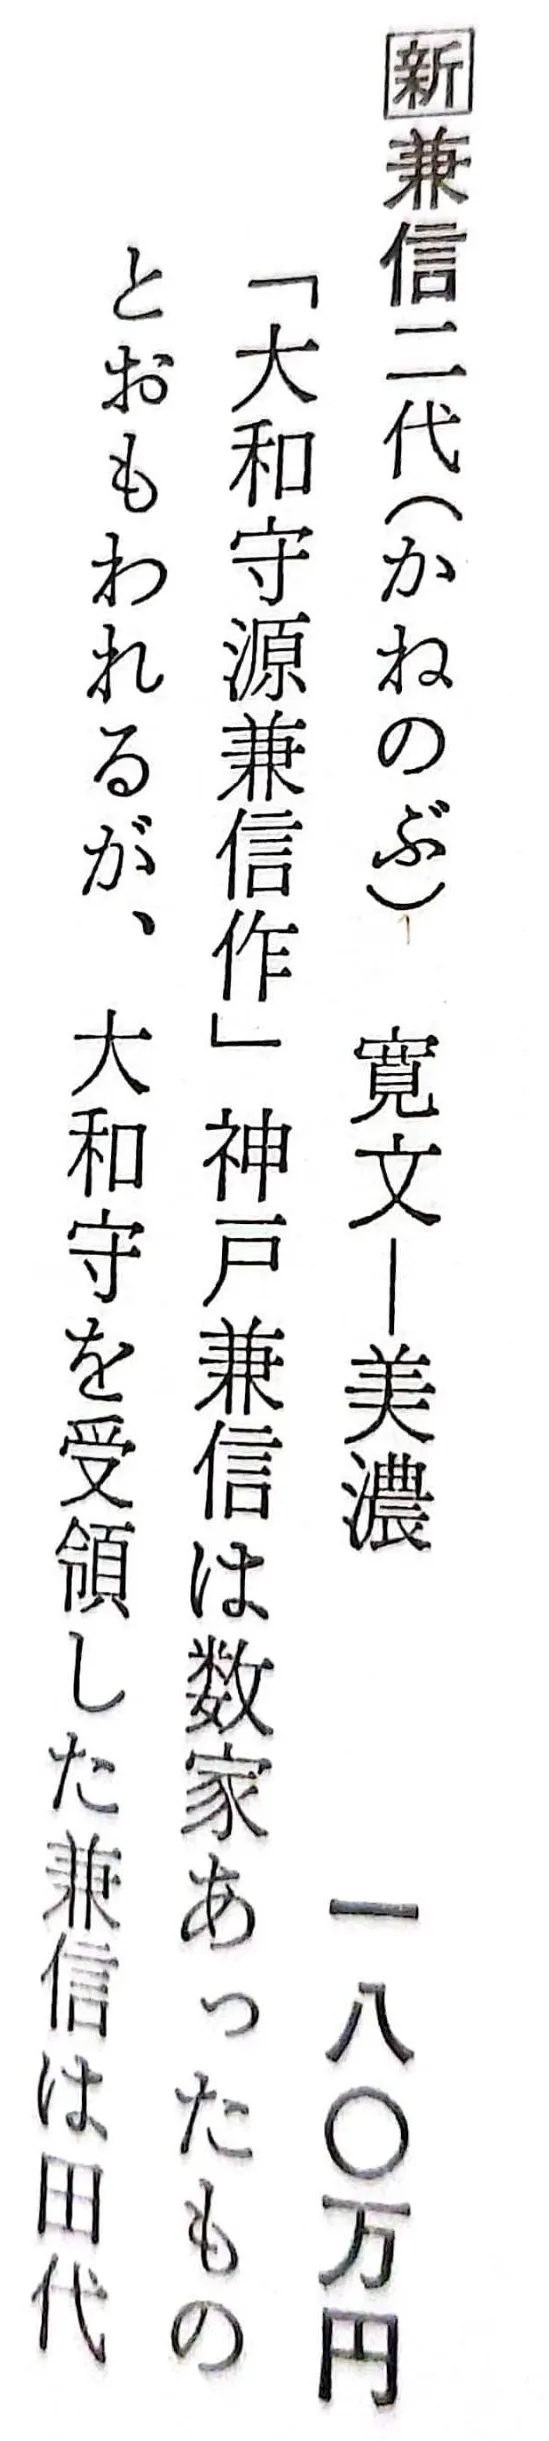 新兼信二代(かねのぶ) 寛文ー美濃 一八〇万円
「大和守源兼信作」神戸兼信は数家あったもの
とおもわれるが、大和守を受領した兼信は田代